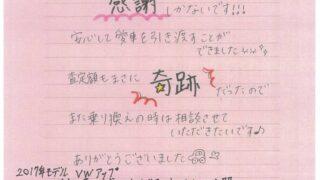 感謝しかないです!!!
安心して愛車を引き渡すことが
できました
査定額もまさに奇跡だったので
また乗り換えの時は相談させて
いただきたいです♪
ありがとうございました
2017年モデル VWアップ